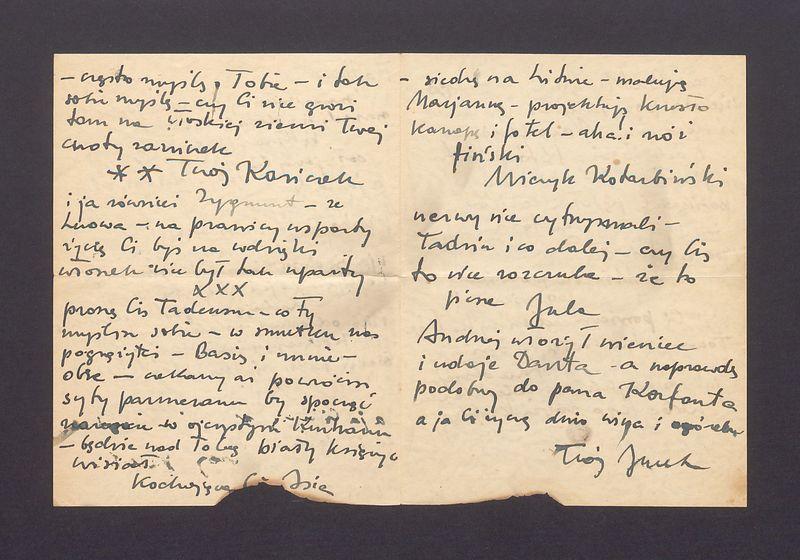 – często myślę o Tobie – i tak
sobie myślę – czy Ci nie grozi
tam na włoskiej ziemi Twej
cnoty zanik
** Twój Kaziczek
i ja również Zygmunt – ze
Lwowa – na prawicy wsparty
życzę Ci byś na wdzięki
włoszek nie był tak uparty
xxx
proszę Cię Tadeuszu – co Ty
myślisz sobie – w smutku nas
pogrążyłeś – Basię i mnie –
obie – czekamy aż powrócisz
syty parmezanu by spocząć
w ojczystym
– będzie nad Tobą biały księżyc
wisiał
Kochająca Cię Isia
– siedzę na – maluję
Marjannę – projektuję krzesło
kanapę i fotel – aha! i nóż
fiński
Mieczyk Kotarbiński
nerwy nie wytrzymali –
Tadziu i co dalej – czy Cię
to nie rozczula – że to
pisze Jula
Andrzej włożył wieniec
i udaje Danta – a naprawdę
podobny do pana Korfanta
a ja Ci życzę dużo wina i
Twój Jurek